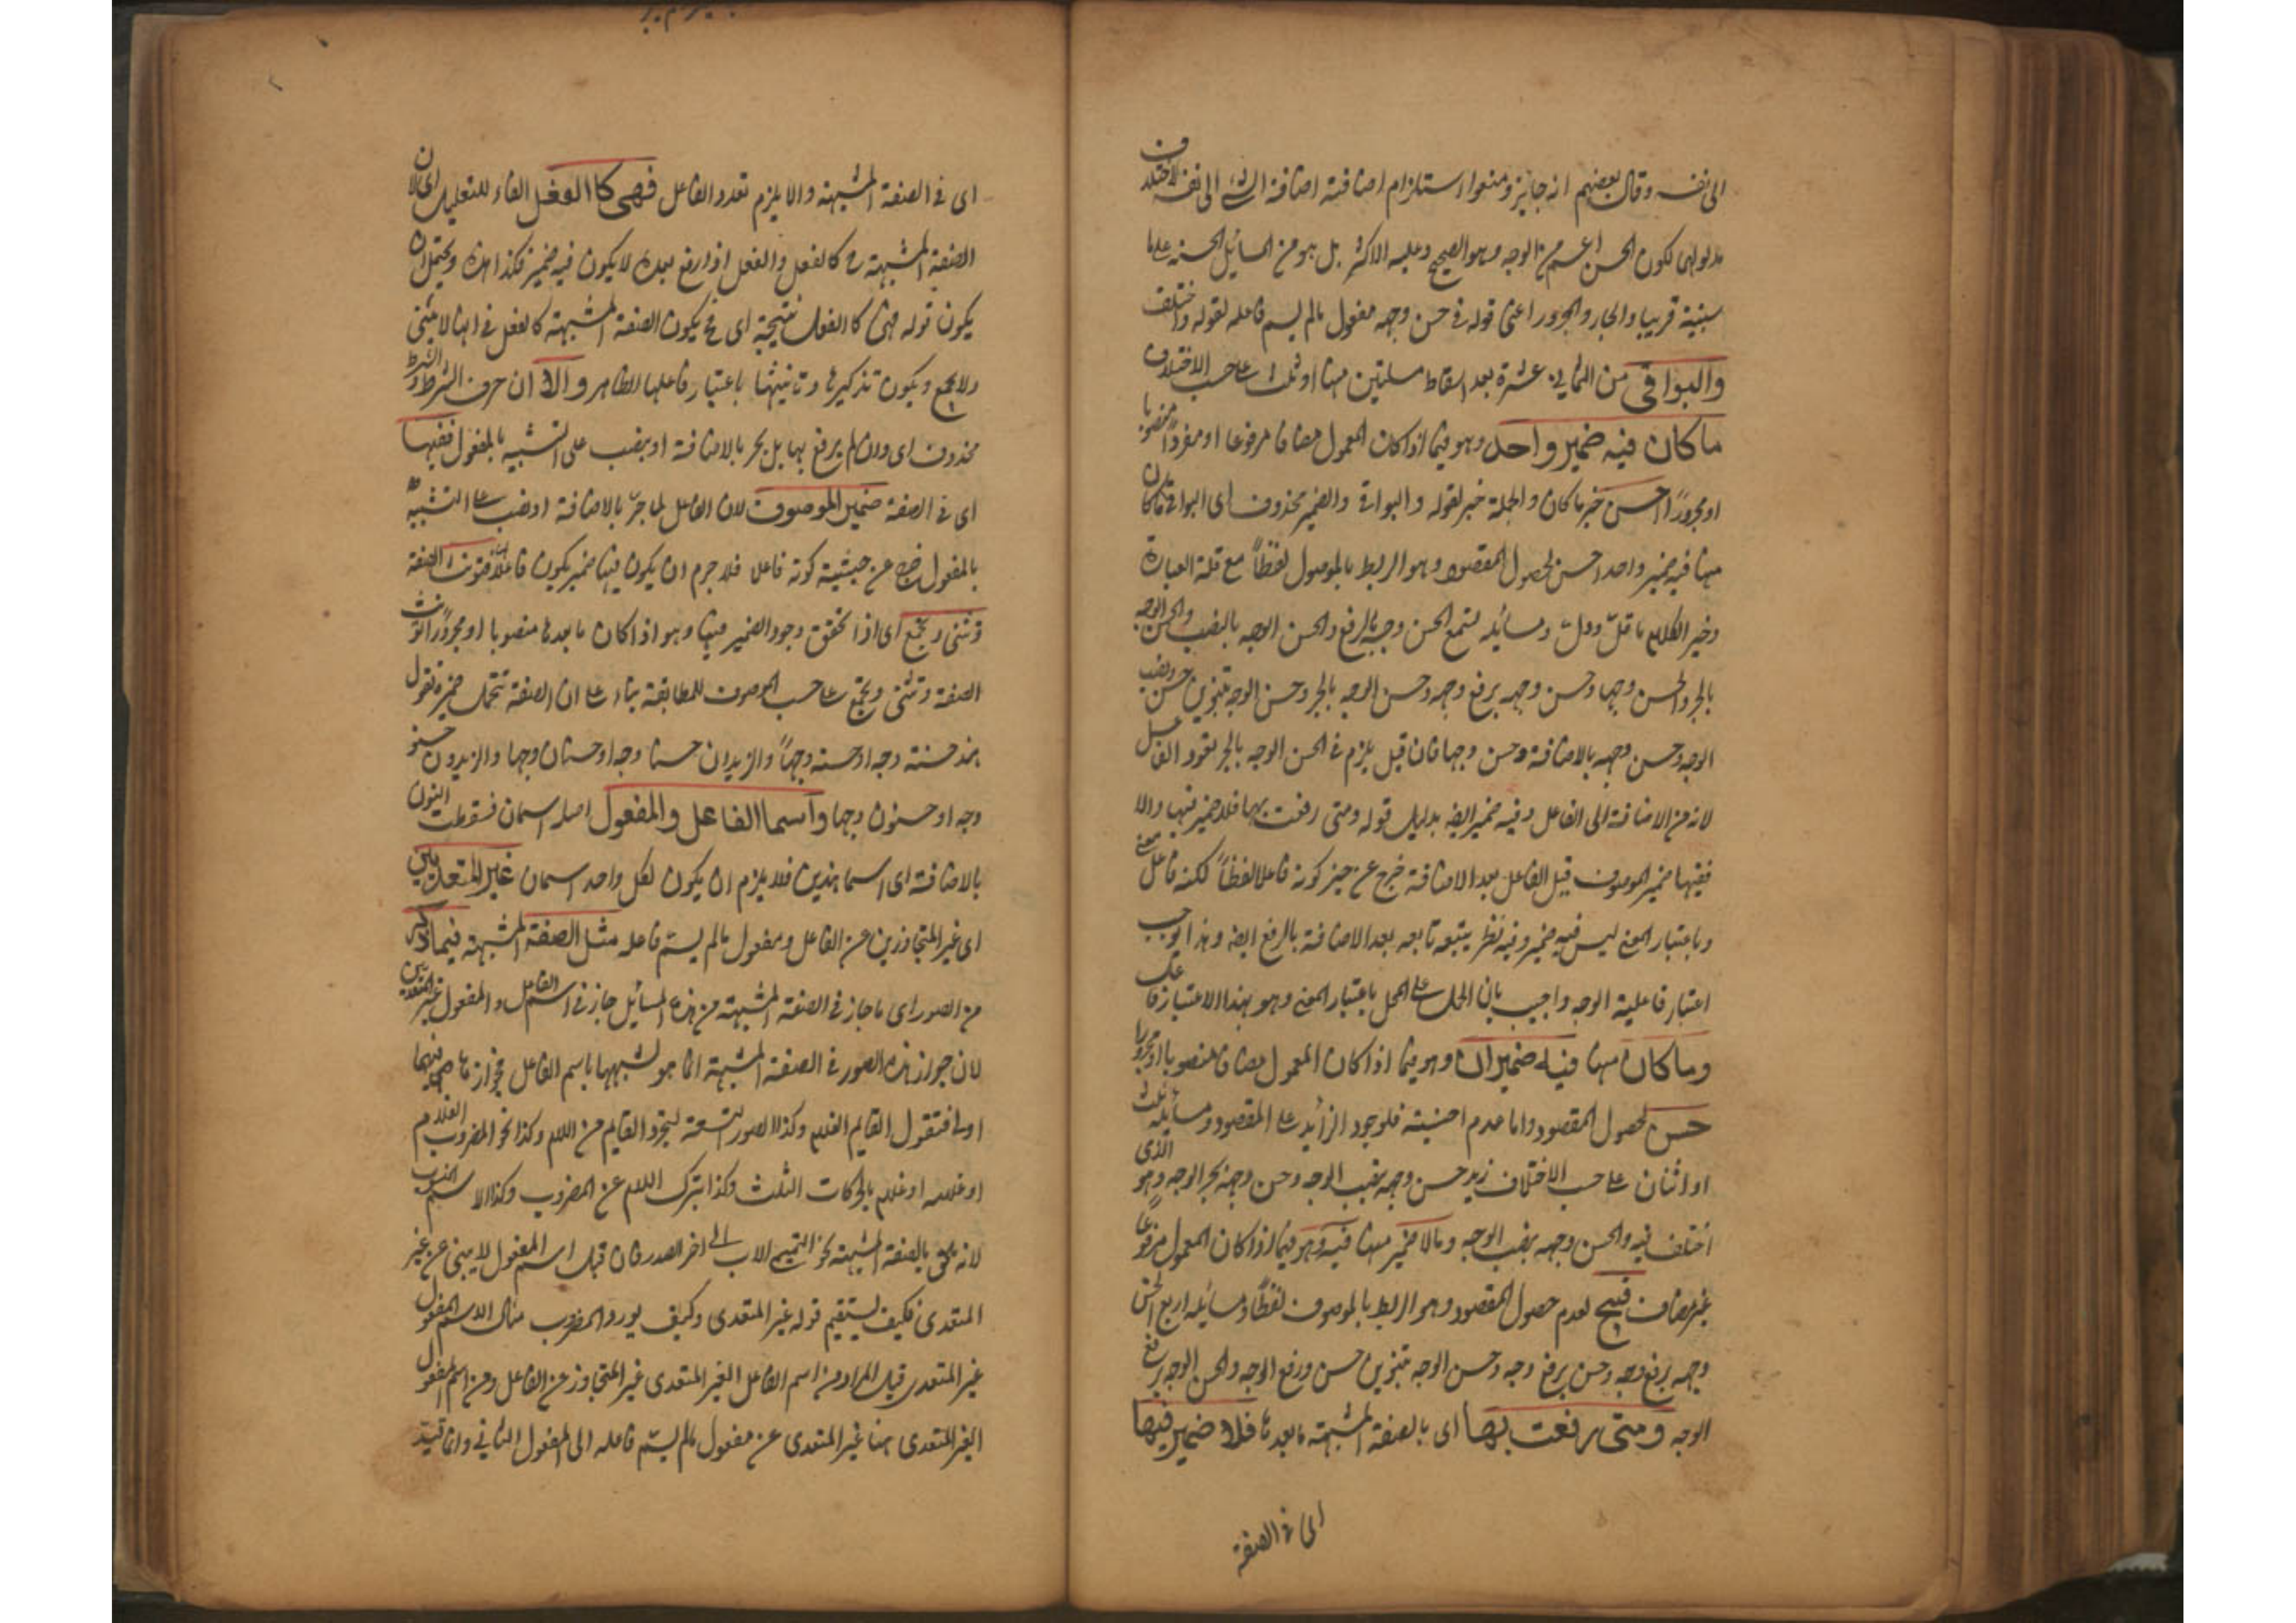 الى نفسه وقال بعضهم انه جايز ومنعوا استلزام اضافته اضافة الشئ الى نفسه لاختلاف
مدلولهما لكون الحسن اعم من الوجه وهو الصحيح وعليه الاكثر بل هو من المسائل الحسنة على ما
سنبينه قريبا والجار والمجرور اعنى قوله فى حسن وجهه مفعول مالم يسم فاعله لقوله واختلف
والبواقى من الثمانية عشرة بعد اسقاط مسئلتين منها او ثلث على حسب الاختلاف
ما كان فيه ضمير واحد وهو فيما اذا كان المعمول مضافا مرفوعا او مفردا منصوبا
او مجرورا احسن خبر ما كان والجملة خبر لقوله والبواقى والضمير محذوف اى البواقى ما كان
منها فيه ضمير واحد احسن لحصول المقصود وهو الربط بالموصول لفظاً مع قلة العبارة
وخير الكلام ما قلّ ودلّ ومسائله تسع الحسن وجهه بالرفع والحسن الوجه بالنصب والحسن الوجه
بالجر والحسن وجها وحسن وجهه برفع وجهه وحسن الوجه بالجر وحسن الوجه بتنوين حسن ونصب
الوجه وحسن وجه بالاضافة وحسن وجها فان قيل يلزم فى الحسن الوجه بالجر تعدد الفاعل
لانه من الاضافة الى الفاعل وفيه ضمير ايضا بدليل قوله ومتى رفعت بها فلا ضمير فيها والا
ففيها ضمير الموصوف قيل الفاعل بعد الاضافة خرج عن حيز كونه فاعلا لفظاً لكنه فاعل معنى
وباعتبار المعنى ليس فيه ضمير وفيه نظر يتبعه تابعه بعد الاضافة بالرفع ايضا وهذا يوجب
اعتبار فاعلية الوجه واجيب بان الحمل على المحل باعتبار المعنى وهو بهذا الاعتبار فاعل
وما كان منها فيه ضميران وهو فيما اذا كان المعمول مضافا منصوبا او مجرورا
حسن لحصول المقصود واما عدم احسنيته فلوجود الزائد على المقصود ومسائله ثلث
او اثنان على حسب الاختلاف زيد حسن وجهه بنصب الوجه وحسن وجهه بجر الوجه وهو الذى
اختلف فيه والحسن وجهه بنصب الوجه وما لا ضمير منها فيه وهو فيما اذا كان المعمول مرفوعا
غير مضاف قبيح لعدم حصول المقصود وهو الربط بالموصوف لفظاً ومسائله اربع الحسن
وجه برفع وجه وحسن برفع وجه وحسن الوجه بتنوين حسن ورفع الوجه والحسن الوجه برفع
الوجه ومتى رفعت بها اى بالصفة المشبهة ما بعدها فلا ضمير فيها
اى فى الصفة
اى فى الصفة المشبهة والا يلزم تعدد الفاعل فهى كالفعل الفاء للتعليل اى لان
الصفة المشبهة ح كالفعل والفعل اذا رفع بعده لا يكون فيه ضمير فكذا هذه ويحتمل ان
يكون قوله فهى كالفعل نتيجة اى فح يكون الصفة المشبهة كالفعل فى انها لا تثنى
ولا تجمع ويكون تذكيرها وتانيثها باعتبار فاعلها الظاهر والا ان حرف الشرط والشرط
محذوف اى وان لم يرفع بها بل يجر بالاضافة او ينصب على التشبيه بالمفعول ففيها
اى فى الصفة ضمير الموصوف لان الفاعل لما جرّ بالاضافة او نصب على التشبيه
بالمفعول خرج عن حيثية كونه فاعلا فلا جرم ان يكون فيها ضمير يكون فاعلا لها فتونث الصفة
وتثنى وتجمع اى اذا تحقق وجود الضمير فيها وهو اذا كان ما بعدها منصوبا او مجرورا تونث
الصفة وتثنى وتجمع على حسب الموصوف للمطابقة بناء على ان الصفة تتحمل ضميره تقول
هند حسنة وجه او حسنة وجهاً والزيدان حسنا وجه او حسنان وجها والزيدون حسنو
وجه او حسنون وجها واسما الفاعل والمفعول اصله اسمان فسقطت النون
بالاضافة اى اسما هذين فلا يلزم ان يكون لكل واحد اسمان غير المتعديين
اى غير المتجاوزين عن الفاعل ومفعول مالم يسم فاعله مثل الصفة المشبهة فيما ذكر
من الصور اى ما جاز فى الصفة المشبهة من هذه المسائل جاز فى اسم الفاعل والمفعول غير المتعديين
لان جواز هذه الصور فى الصفة المشبهة انما هو لشبهها باسم الفاعل فجوازها فيهما
اولى فتقول القايم الغلام وكذا الصور التسعة لتجرد القايم من اللام وكذا نحو المضروب الغلام
او غلامه او غلام بالحركات الثلث وكذا بترك اللام عن المضروب وكذا الاسم المنسوب
لانه ملحق بالصفة المشبهة نحو التميمى الاب الى اخر الصدر فان قيل اسم المفعول لا يبنى عن غير
المتعدى فكيف يستقيم قوله غير المتعدى وكيف يورد المضروب مثال الاسم المفعول
غير المتعدى قيل المراد من اسم الفاعل الغير المتعدى غير المتجاوز عن الفاعل ومن اسم المفعول
الغير المتعدى هنا غير المتعدى عن مفعول مالم يسم فاعله الى المفعول الثانى وانما قيد